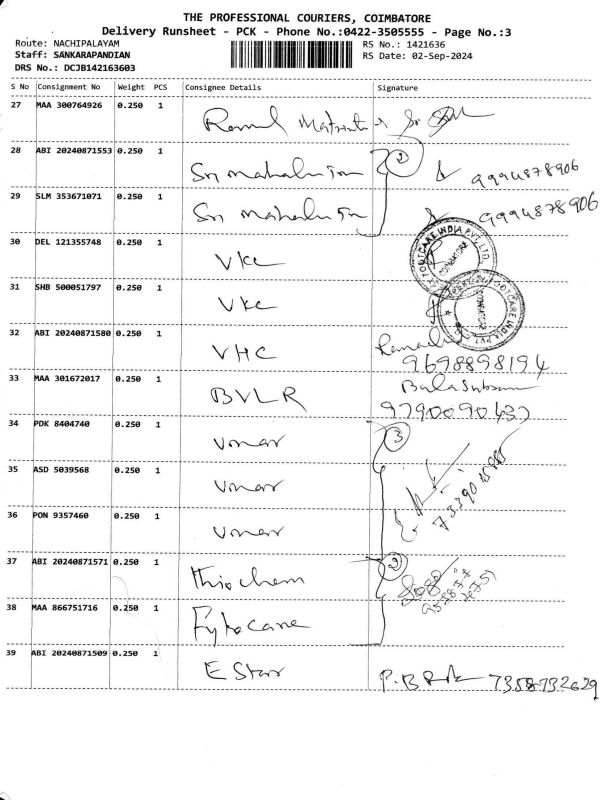 THE PROFESSIONAL COURIERS, COIMBATORE
Delivery Runsheet - PCK - Phone No.:0422-3505555 - Page No.:3
Route: NACHIPALAYAM RS No.: 1421636
Staff: SANKARAPANDIAN RS Date: 02-Sep-2024
DRS No.: DCJB142163603
S No Consignment No Weight PCS Consignee Details Signature
27 MAA 300764926 0.250 1
28 ABI 20240871553 0.250 1 Sri mahalaxmi 2 9994878906
29 SLM 353671071 0.250 1 Sri mahalaxmi 9994878906
30 DEL 121355748 0.250 1 VKC
31 SHB 500051797 0.250 1 VKC
32 ABI 20240871580 0.250 1 VHC 9698898194
33 MAA 301672017 0.250 1 BVLR
34 PDK 8404740 0.250 1 Umar 3
35 ASD 5039568 0.250 1 Umar
36 PON 9357460 0.250 1 Umar
37 ABI 20240871571 0.250 1 Thiochem 2
38 MAA 866751716 0.250 1 Fytocare
39 ABI 20240871509 0.250 1 E Starr 7358732629